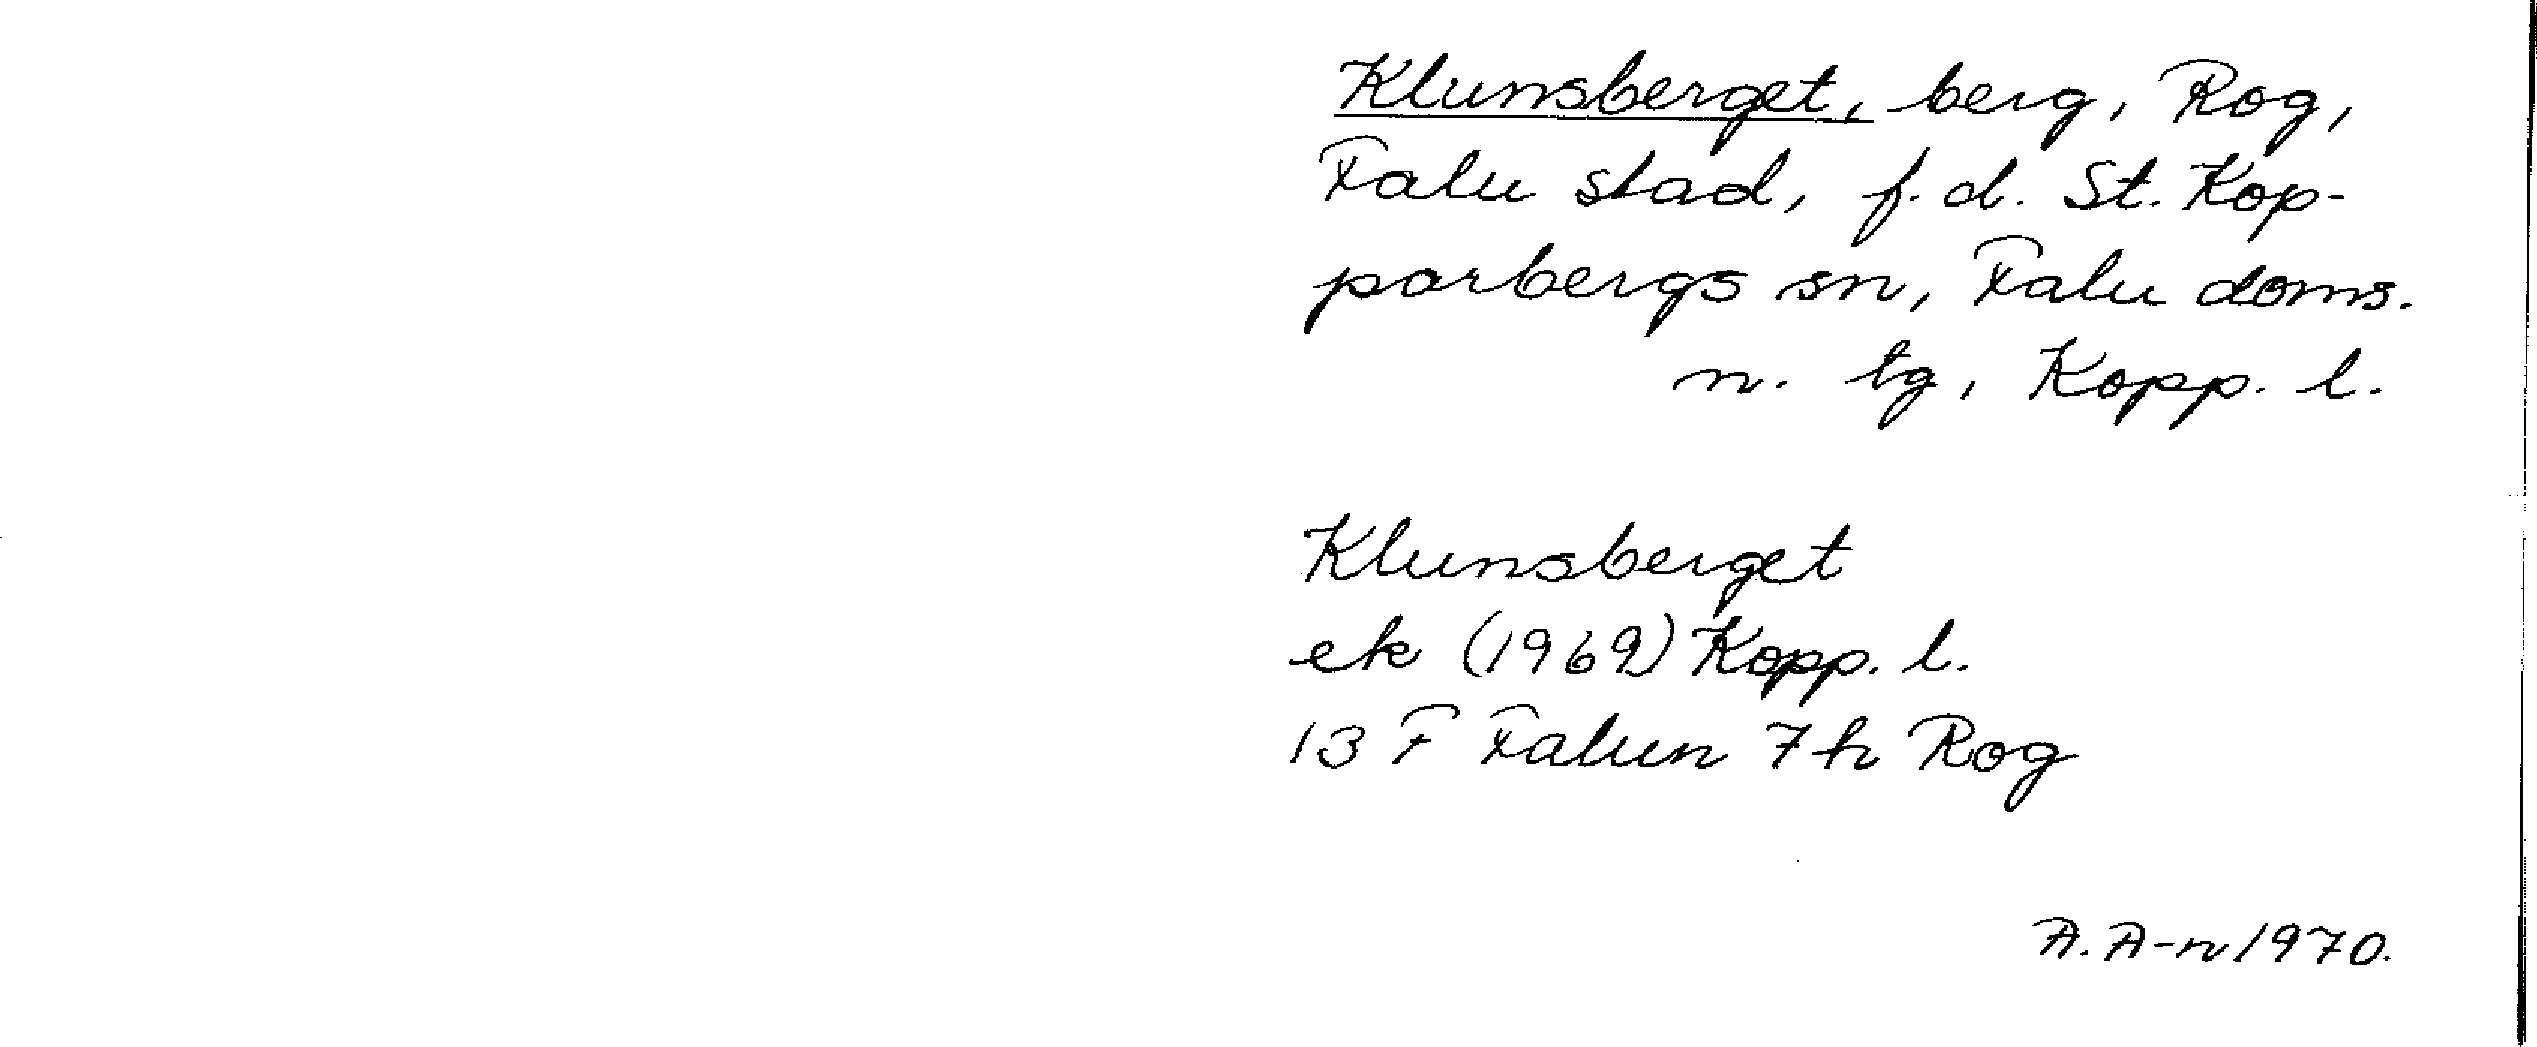 Klunsberget, berg, Rog,
Falu stad, f.d. St. Kop-
parbergs sn, Falu doms.
n. tg, Kopp. l.
Klunsberget
ek (1969) Kopp. l.
13 F Falun 7 h Rog
A. A-n 1970.